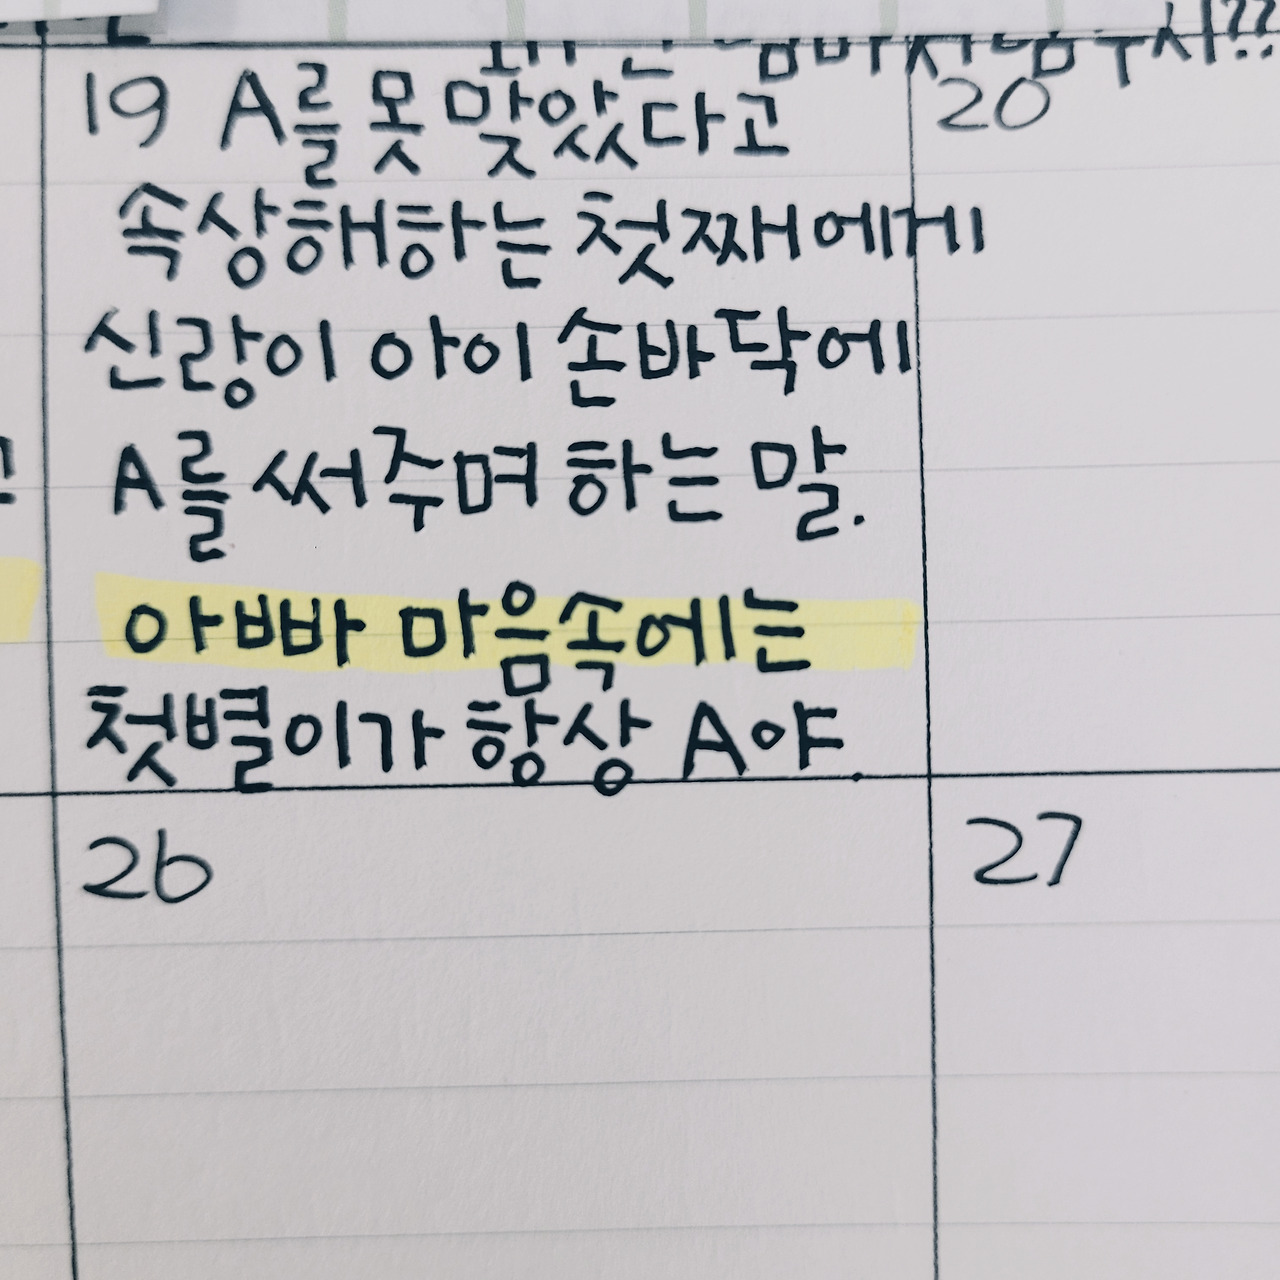 19 A를 못 맞았다고
20
속상해하는 첫째에게
신랑이 아이 손바닥에
A를 써주며 하는 말.
아빠 마음속에는
첫별이가 항상 A야.
26
27